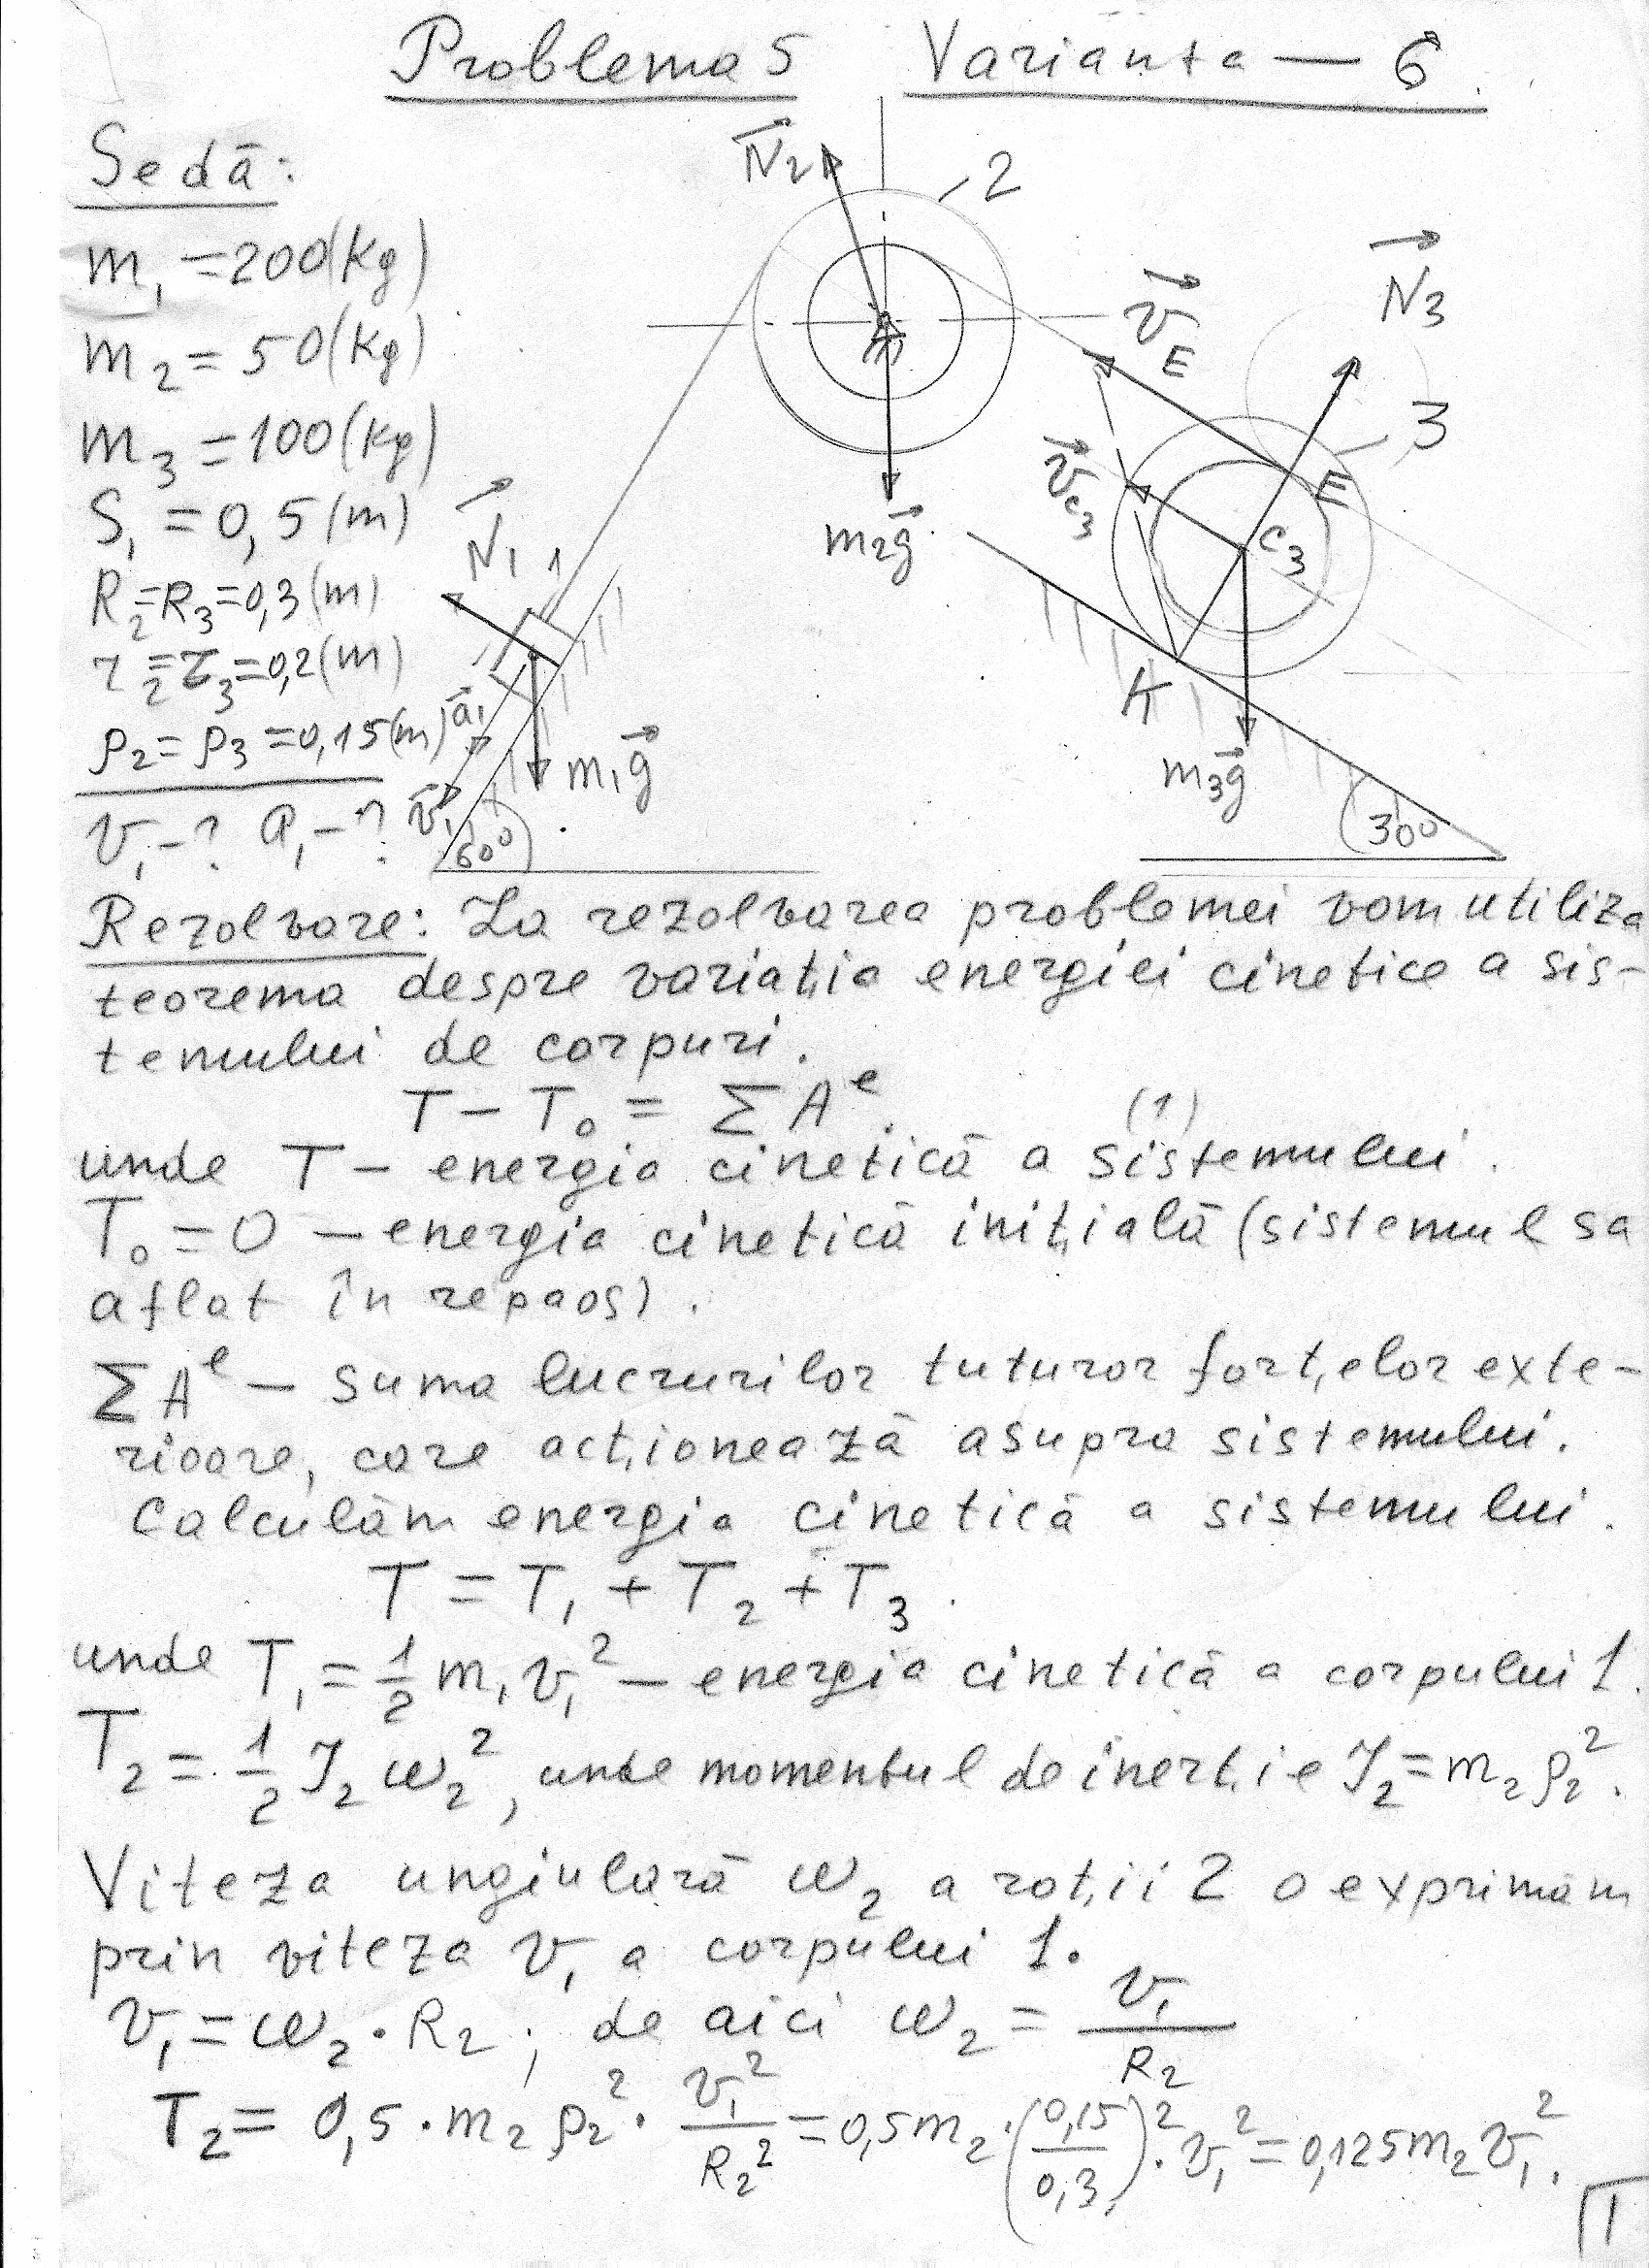 Problema 5 Varianta — 6
Se dă:
m₁ = 200(kg)
m₂ = 50(kg)
m₃ = 100(kg)
S₁ = 0,5(m)
R₂=R₃=0,3(m)
r₂=r₃=0,2(m)
ρ₂ = ρ₃ = 0,15(m)
v₁-? a₁-?
N₂
2
v_E
N₃
3
E
v_C₃
C₃
m₂g
N₁
1
K
a₁
m₁g
m₃g
v₁
60°
30°
Rezolvare: La rezolvarea problemei vom utiliza
teorema despre variația energiei cinetice a sis-
temului de corpuri.
T – T₀ = Σ Aᵉ. (1)
unde T – energia cinetică a sistemului.
T₀ = 0 – energia cinetică inițială (sistemul sa
aflat în repaos).
Σ Aᵉ – suma lucrurilor tuturor forțelor exte-
rioare, care acționează asupra sistemului.
Calculăm energia cinetică a sistemului.
T = T₁ + T₂ + T₃.
unde T₁ = 1/2 m₁ v₁² – energia cinetică a corpului 1.
T₂ = 1/2 J₂ ω₂², unde momentul de inerție J₂ = m₂ρ₂².
Viteza ungiulară ω₂ a roții 2 o exprimăm
prin viteza v₁ a corpului 1.
v₁ = ω₂ · R₂; de aici ω₂ = v₁/R₂
T₂ = 0,5 · m₂ρ₂² · v₁²/R₂² = 0,5m₂ · (0,15/0,3)² · v₁² = 0,125m₂v₁².
1